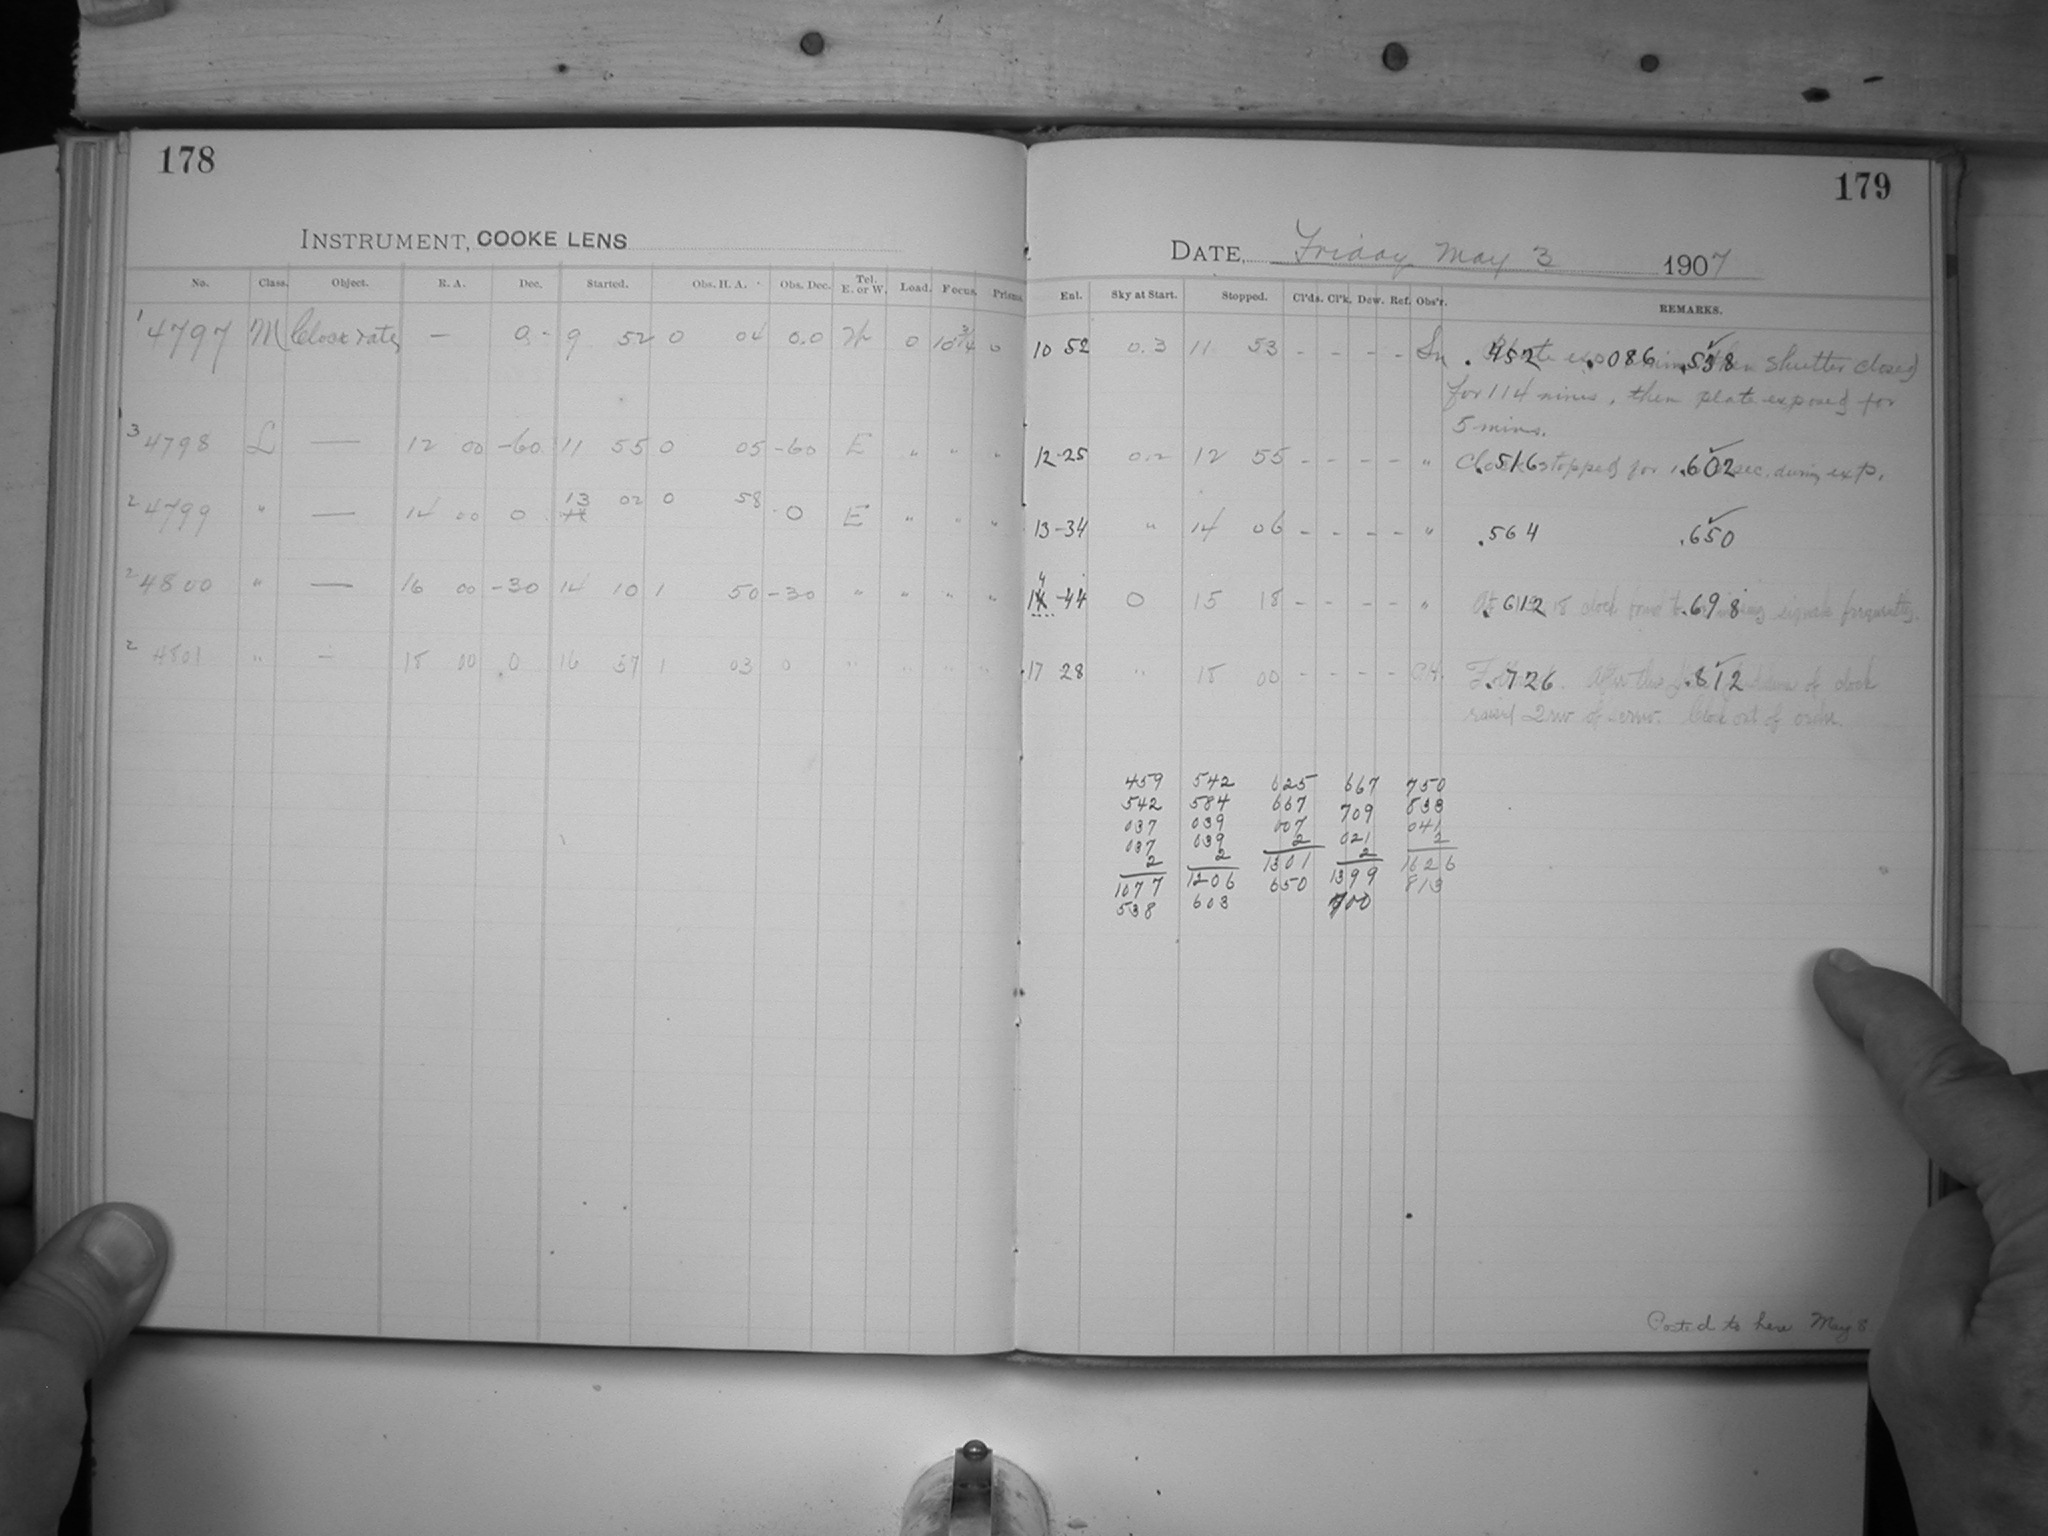 178
INSTRUMENT, COOKE LENS
No. Class. Object. R. A. Dec. Started. Obs. H. A. Obs. Dec. Tel. E. or W. Load. Focus. Prisms.
1 4797 M Clock rates — 0 - 9 52 0 04 0.0 W 0 10 3/4 0
3 4798 L — 12 00 -60 11 55 0 05 -60 E " " "
2 4799 " — 14 00 0 13 02 0 58 0 E " " "
2 4800 " — 16 00 -30 14 10 1 50 -30 " " " "
2 4801 " — 18 00 0 16 57 1 03 0 " " " "
179
DATE, Friday May 3 1907
Ent. Sky at Start. Stopped. Cl'ds. Cl'k. Dew. Ref. Obs'r. REMARKS.
10 52 0.3 11 53 - - - - Plate shutter closed
.452 .086 .538
for 114 mins, then plate exposed for
5 mins.
12-25 0.2 12 55 - - - - " stopped for sec. during exp.
.516 .602
13-34 " 14 06 - - - - " .564 .650
14-44 0 15 18 - - - - " clock signals frequently.
.612 .698
17 28 " 18 00 - - - - After this of clock
.726 .812
raised 2 rev. of screw. Clock out of order.
459 542 625 667 750
542 584 667 709 833
037 039 007 021 041
037 039 2 2 2
2 2 1301 1399 1626
1077 1206 650 700 813
538 603
Posted to here May 8